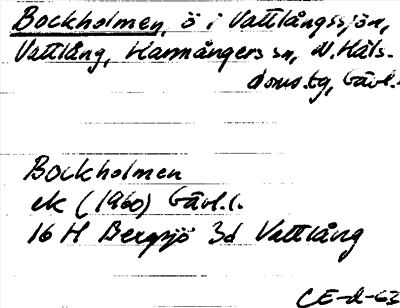 Bockholmen, ö i Vattlångssjön,
Vattlång, Harmångers sn, N. Häls.
doms.tg, Gävl.l.
Bockholmen
ek (1960) Gävl.l.
16 H Bergsjö 3d Vattlång
CE-d-63